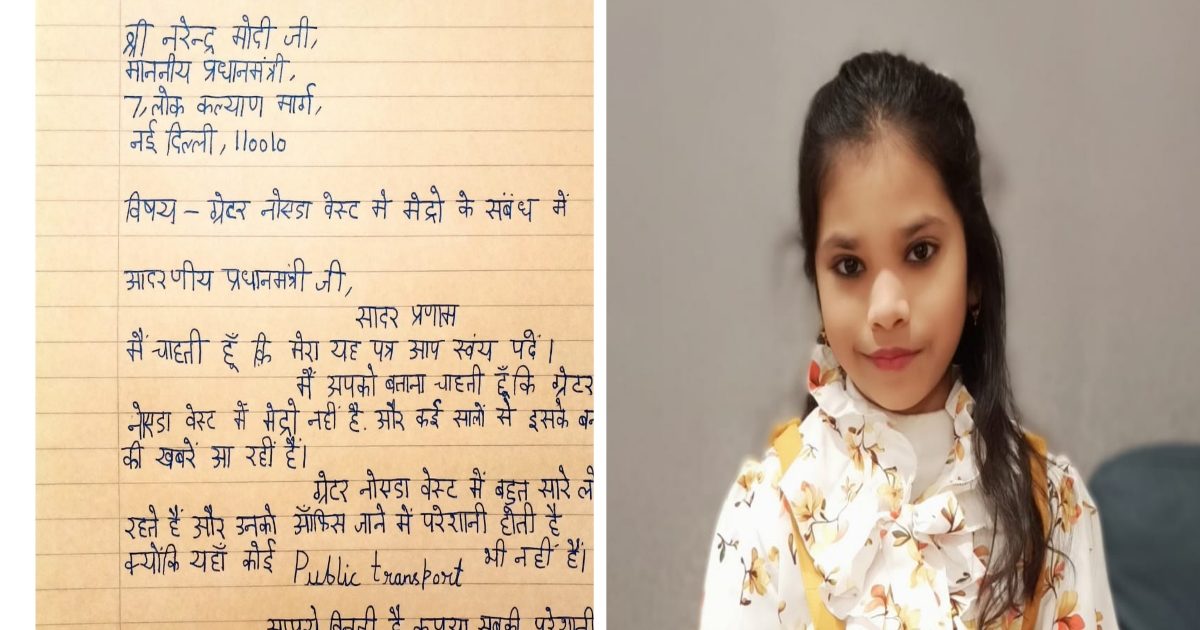 श्री नरेन्द्र मोदी जी,
माननीय प्रधानमंत्री,
7, लोक कल्याण मार्ग,
नई दिल्ली, 110010
विषय - ग्रेटर नोएडा वेस्ट में मेट्रो के संबंध में
आदरणीय प्रधानमंत्री जी,
सादर प्रणाम
मैं चाहती हूँ कि मेरा यह पत्र आप स्वंय पढें।
मैं आपको बताना चाहती हूँ कि ग्रेटर
नोएडा वेस्ट में मेट्रो नहीं है. और कई सालों से इसके
की खबरें आ रहीं हैं।
ग्रेटर नोएडा वेस्ट में बहुत सारे
रहते हैं और उनको ऑफिस जाने में परेशानी होती है
क्योंकि यहाँ कोई Public transport भी नहीं हैं।